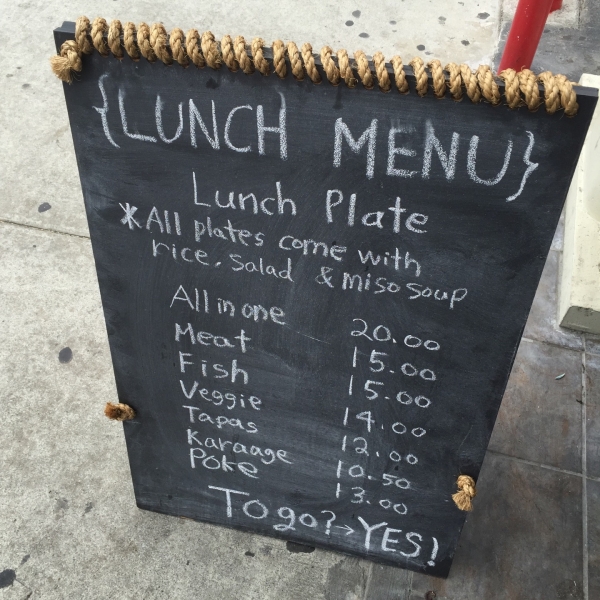 {LUNCH MENU}
Lunch Plate
*All plates come with
rice, salad & miso soup
All in one 20.00
Meat 15.00
Fish 15.00
Veggie 14.00
Tapas 12.00
Karaage 10.50
Poke 13.00
To go?→YES!